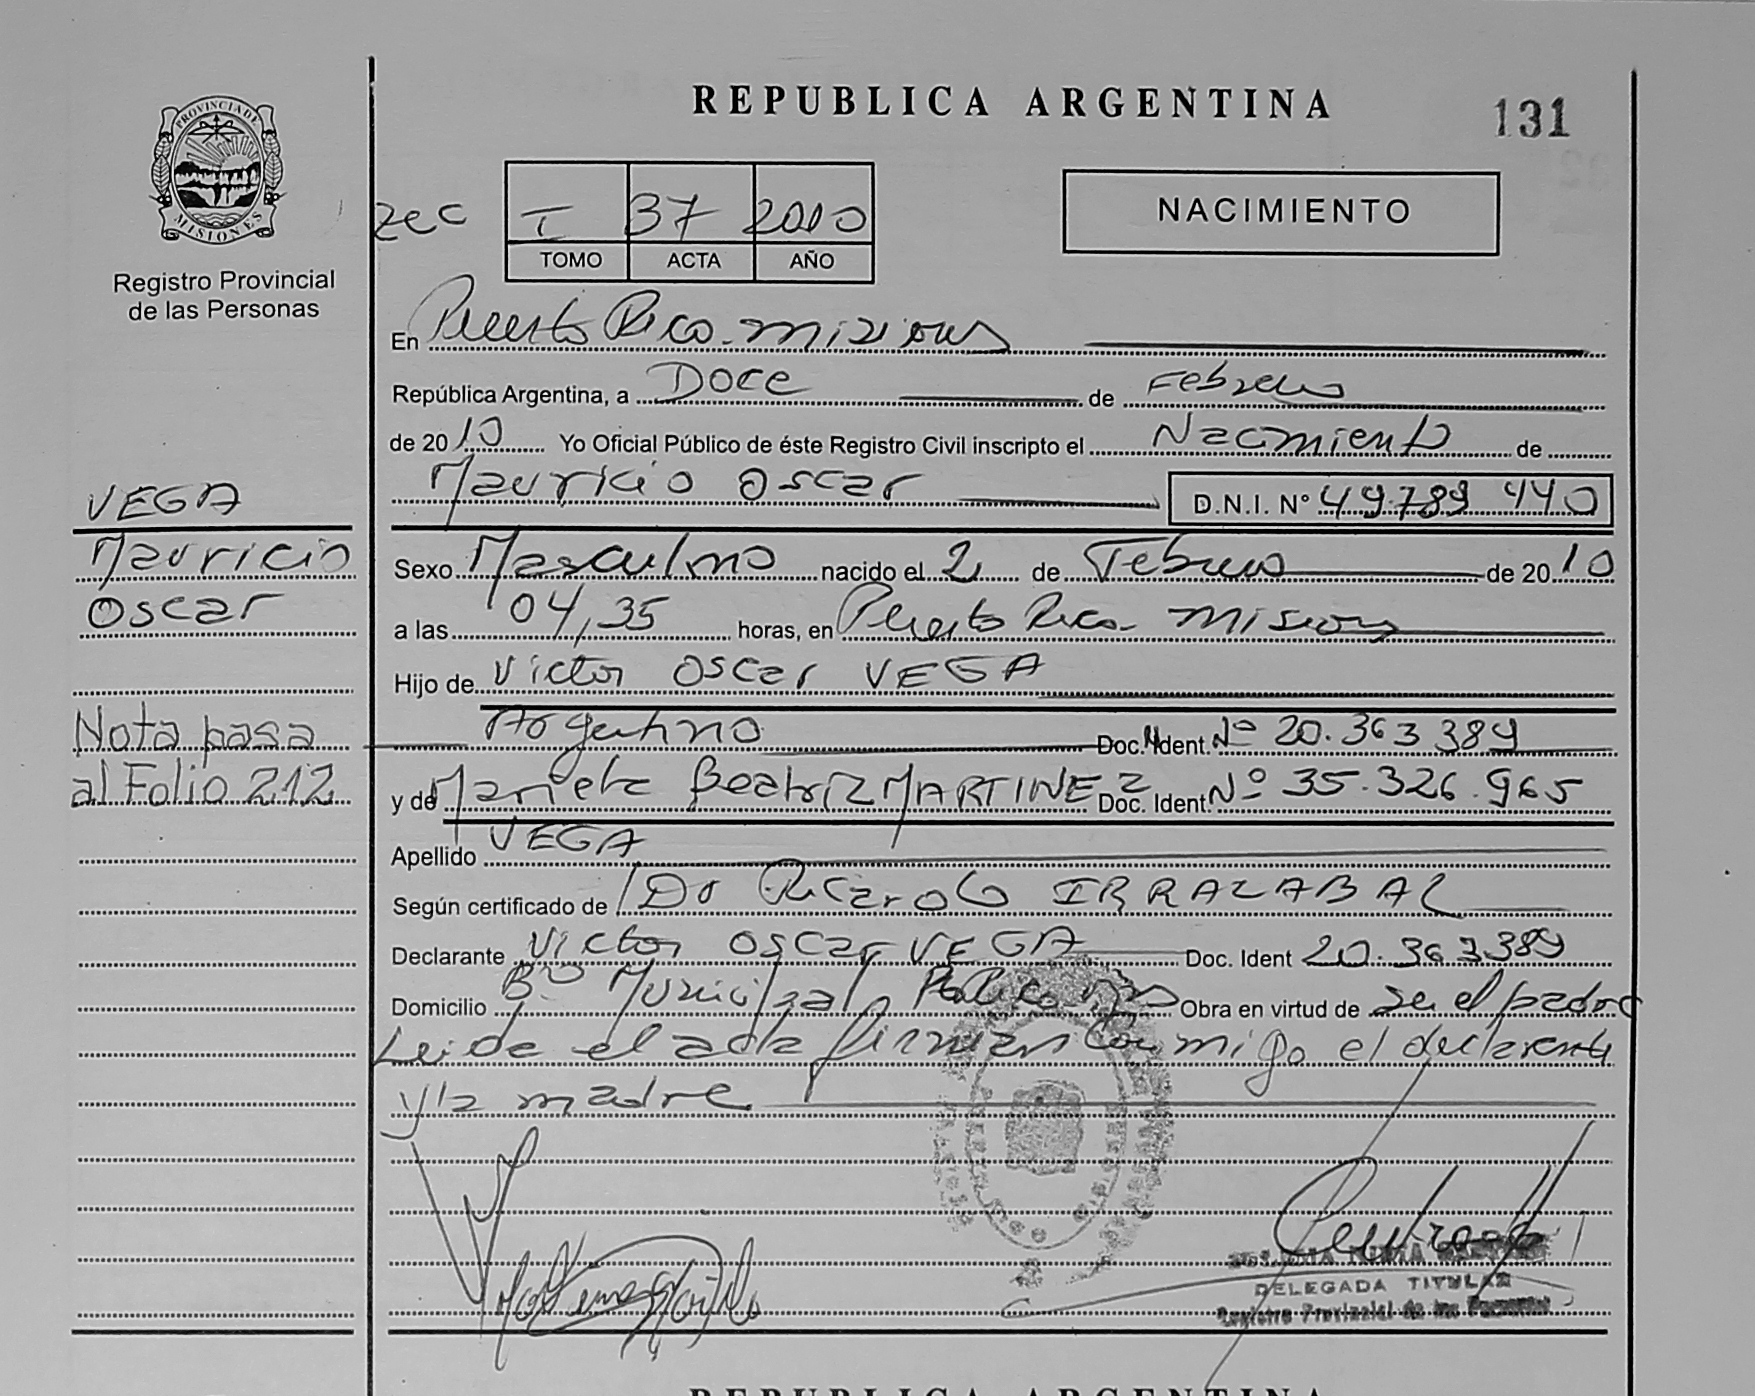 REPUBLICA ARGENTINA
131
PROVINCIA DE
MISIONES
Registro Provincial
de las Personas
I 37 2010
TOMO ACTA AÑO
NACIMIENTO
En Puerto Rico - Misiones
República Argentina, a Doce de Febrero
de 2010 Yo Oficial Público de éste Registro Civil inscripto el Nacimiento de
Mauricio Oscar D.N.I. Nº 49.789 440
VEGA
Mauricio
Oscar
Nota pasa
al Folio 212
Sexo Masculino nacido el 2 de Febrero de 2010
a las 04,35 horas, en Puerto Rico - Misiones
Hijo de Victor Oscar VEGA
Argentino Doc. Ident. Nº 20.363 389
y de Mariela Beatriz MARTINEZ Doc. Ident. Nº 35.326.965
Apellido VEGA
Según certificado de Dr Ricardo IRRAZABAL
Declarante Victor Oscar VEGA Doc. Ident 20.363389
Domicilio Bº Municipal Pto Rico Mnes Obra en virtud de ser el padre
Leida el acta firman conmigo el declarante
y la madre
DELEGADA TITULAR
Registro Provincial de las Personas
REPUBLICA ARGENTINA